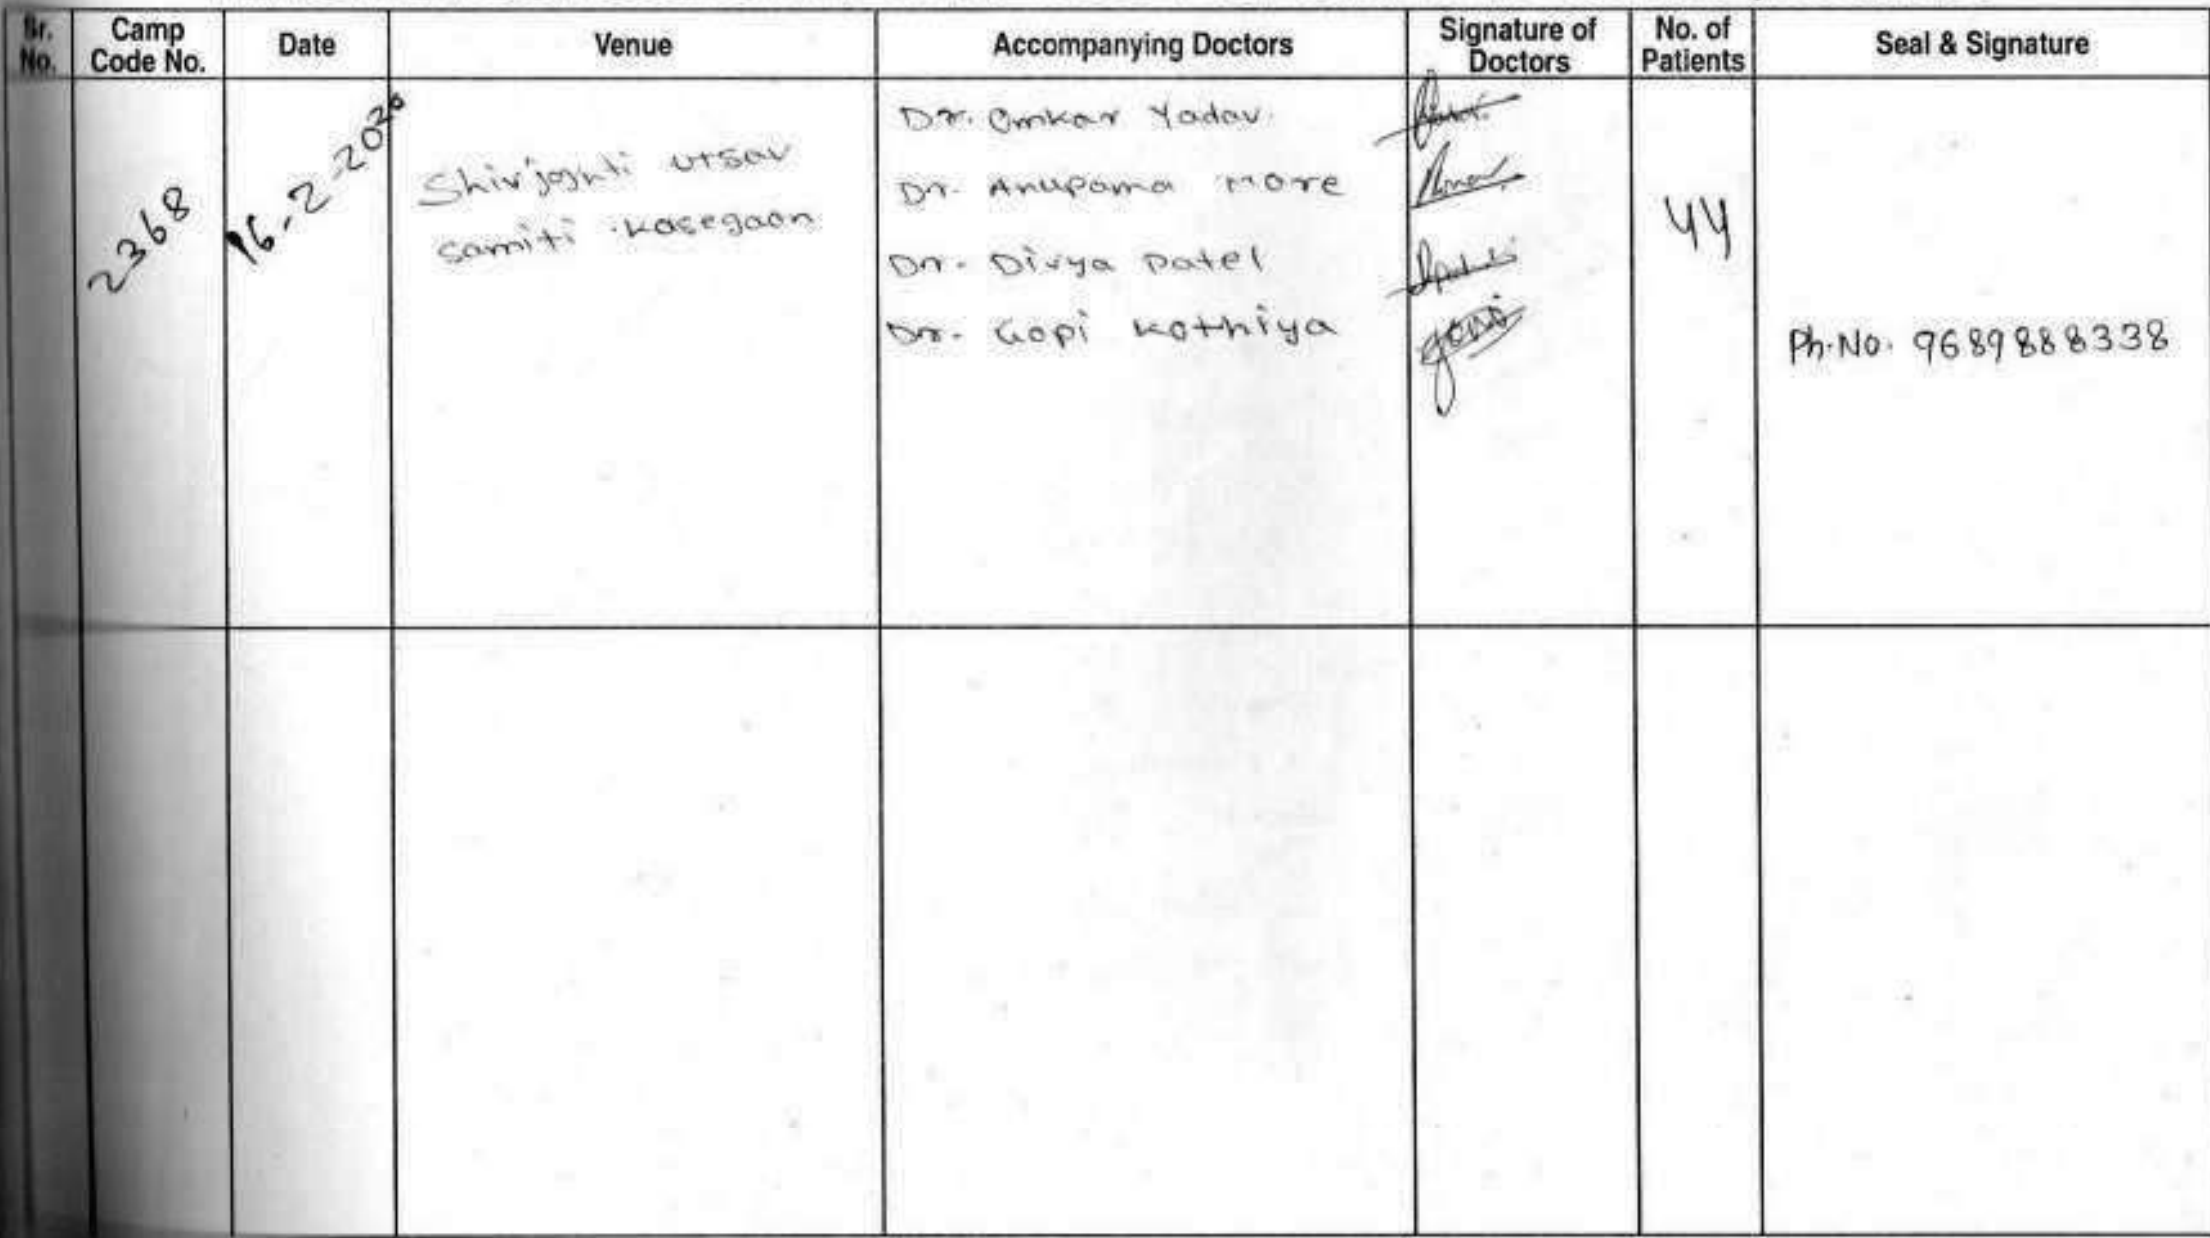 Sr. No. Camp Code No. Date Venue Accompanying Doctors Signature of Doctors No. of Patients Seal & Signature
2368
16-2-2020
Shivjaynti utsav
samiti kasegaon
Dr. Omkar Yadav.
Dr. Anupama more
Dr. Divya patel
Dr. Gopi kothiya
Gopi
44
Ph.No. 9689888338